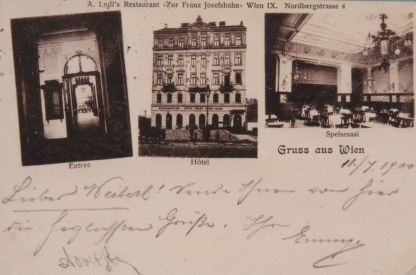 A. Lull's Restaurant »Zur Franz Josefsbahn« Wien IX. Nordbergstrasse 4
Entree
Hôtel
Speisesaal
Gruss aus Wien
10/7 1900
Lieber Sende Ihnen von hier
die herzlichsten Grüße. Ihr